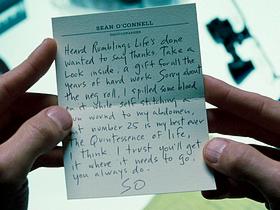 SEAN O'CONNELL
PHOTOGRAPHER
Heard Rumblings Life's done
wanted to say thanks. Take a
Look inside, a gift for all the
years of hard work. Sorry about
the neg roll, I spilled some blood
on it while self stitching a
wound to my abdomen,
but number 25 is my best ever
The Quintessence of life,
I think. I trust you'll get
it where it needs to go,
you always do.
SO